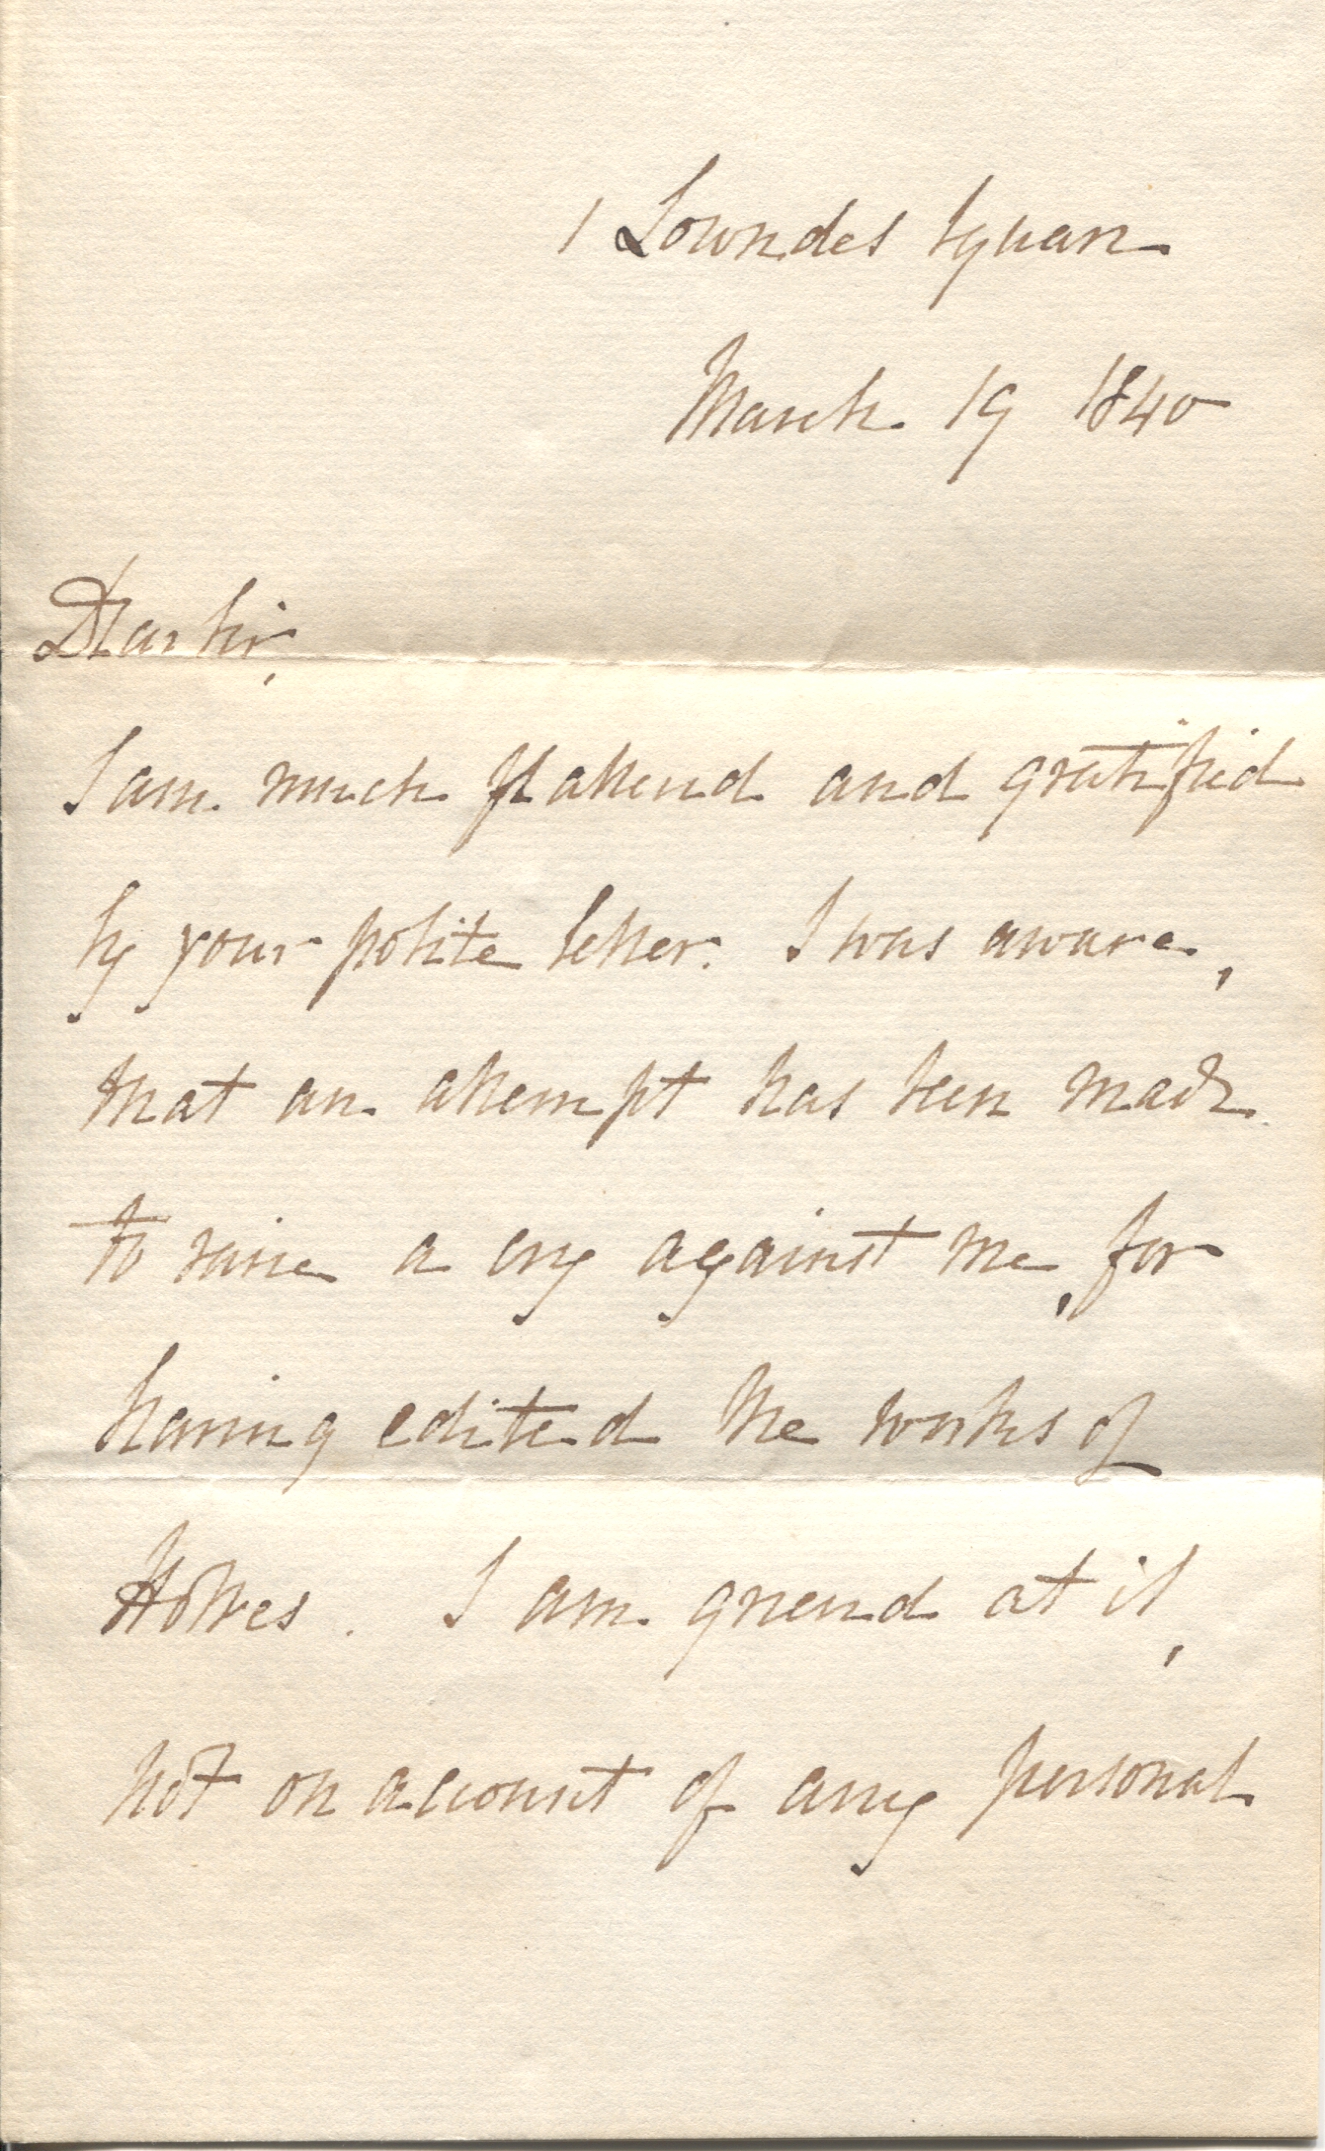 1 Lowndes Square
March 19 1840
Dear Sir,
I am much flattered and gratified
by your polite letter. I was aware,
that an attempt has been made
to raise a cry against me, for
having edited the works of
Hobbes. I am grieved at it,
not on account of any personal